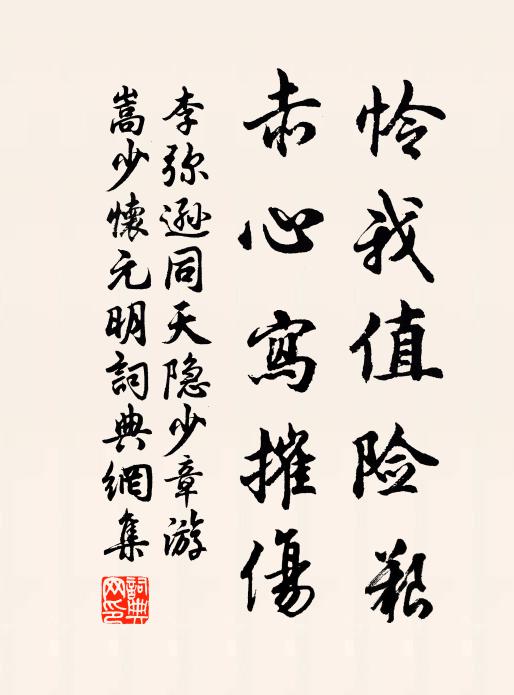 怜我值险艱
赤心寫摧傷
李弥遜同天隐少章游
嵩少懷元明詞典網集
詞典